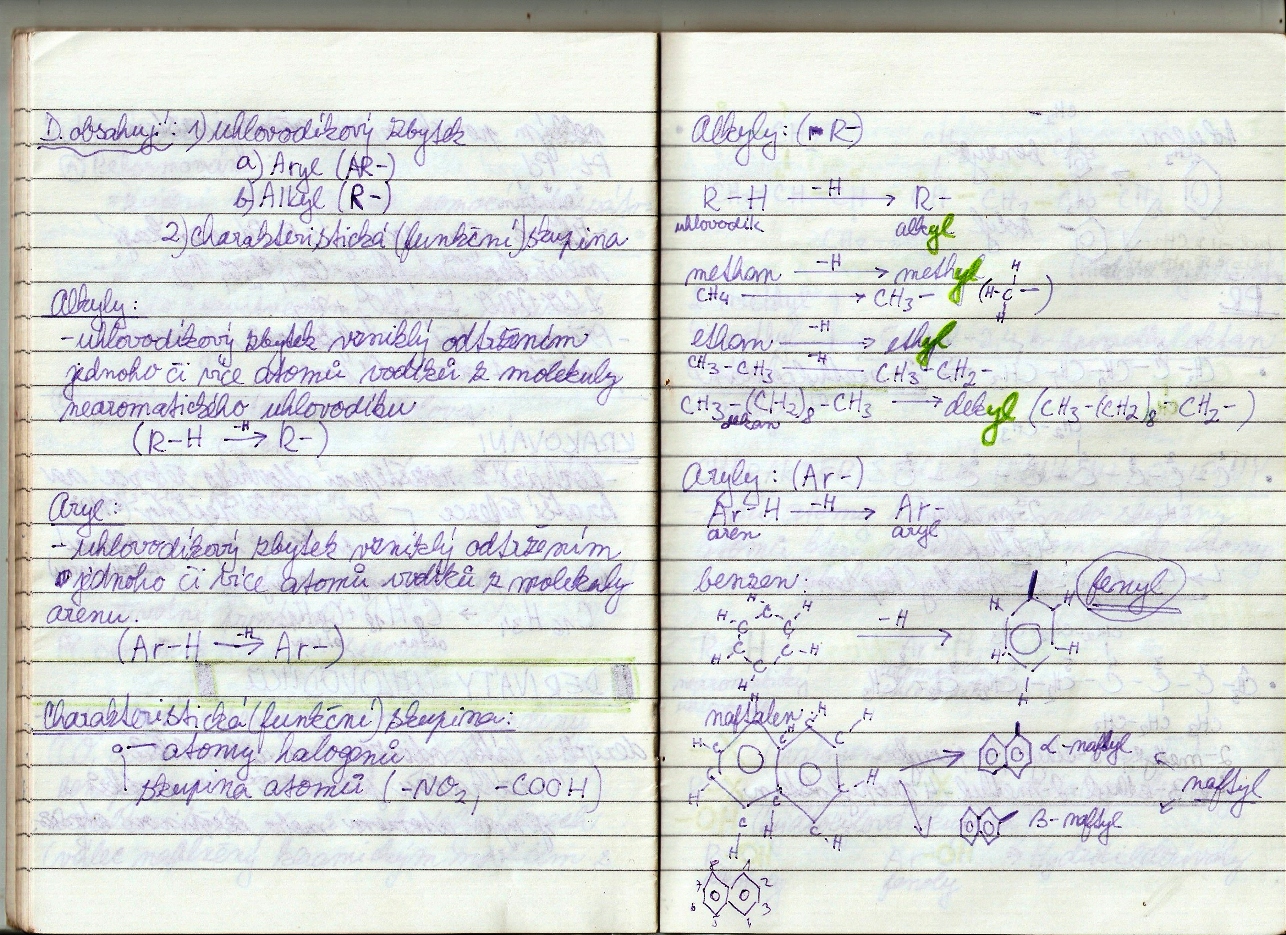 D. obsahují: 1) uhlovodíkový zbytek
a) Aryl (AR-)
b) Alkyl (R-)
2) charakteristická (funkční) skupina
Alkyly:
- uhlovodíkový zbytek vzniklý odtržením
jednoho či více atomů vodíků z molekuly
nearomatického uhlovodíku
(R-H -H→ R-)
Aryl:
- uhlovodíkový zbytek vzniklý odtržením
jednoho či více atomů vodíků z molekuly
arenu.
(Ar-H -H→ Ar-)
Charakteristická (funkční) skupina:
atomy halogenů
skupina atomů (-NO2, -COOH)
Alkyly: (R-)
R-H -H→ R-
uhlovodík alkyl
methan -H→ methyl
CH4 → CH3- (H-C-)
H
H
ethan -H→ ethyl
CH3-CH3 -H→ CH3-CH2-
CH3-(CH2)8-CH3 → dekyl (CH3-(CH2)8-CH2-)
dekan
Aryly: (Ar-)
Ar-H -H→ Ar-
aren aryl
benzen: -H→ fenyl
naftalen:
α-naftyl
naftyl
β-naftyl
8 1
7 2
6 3
5 4